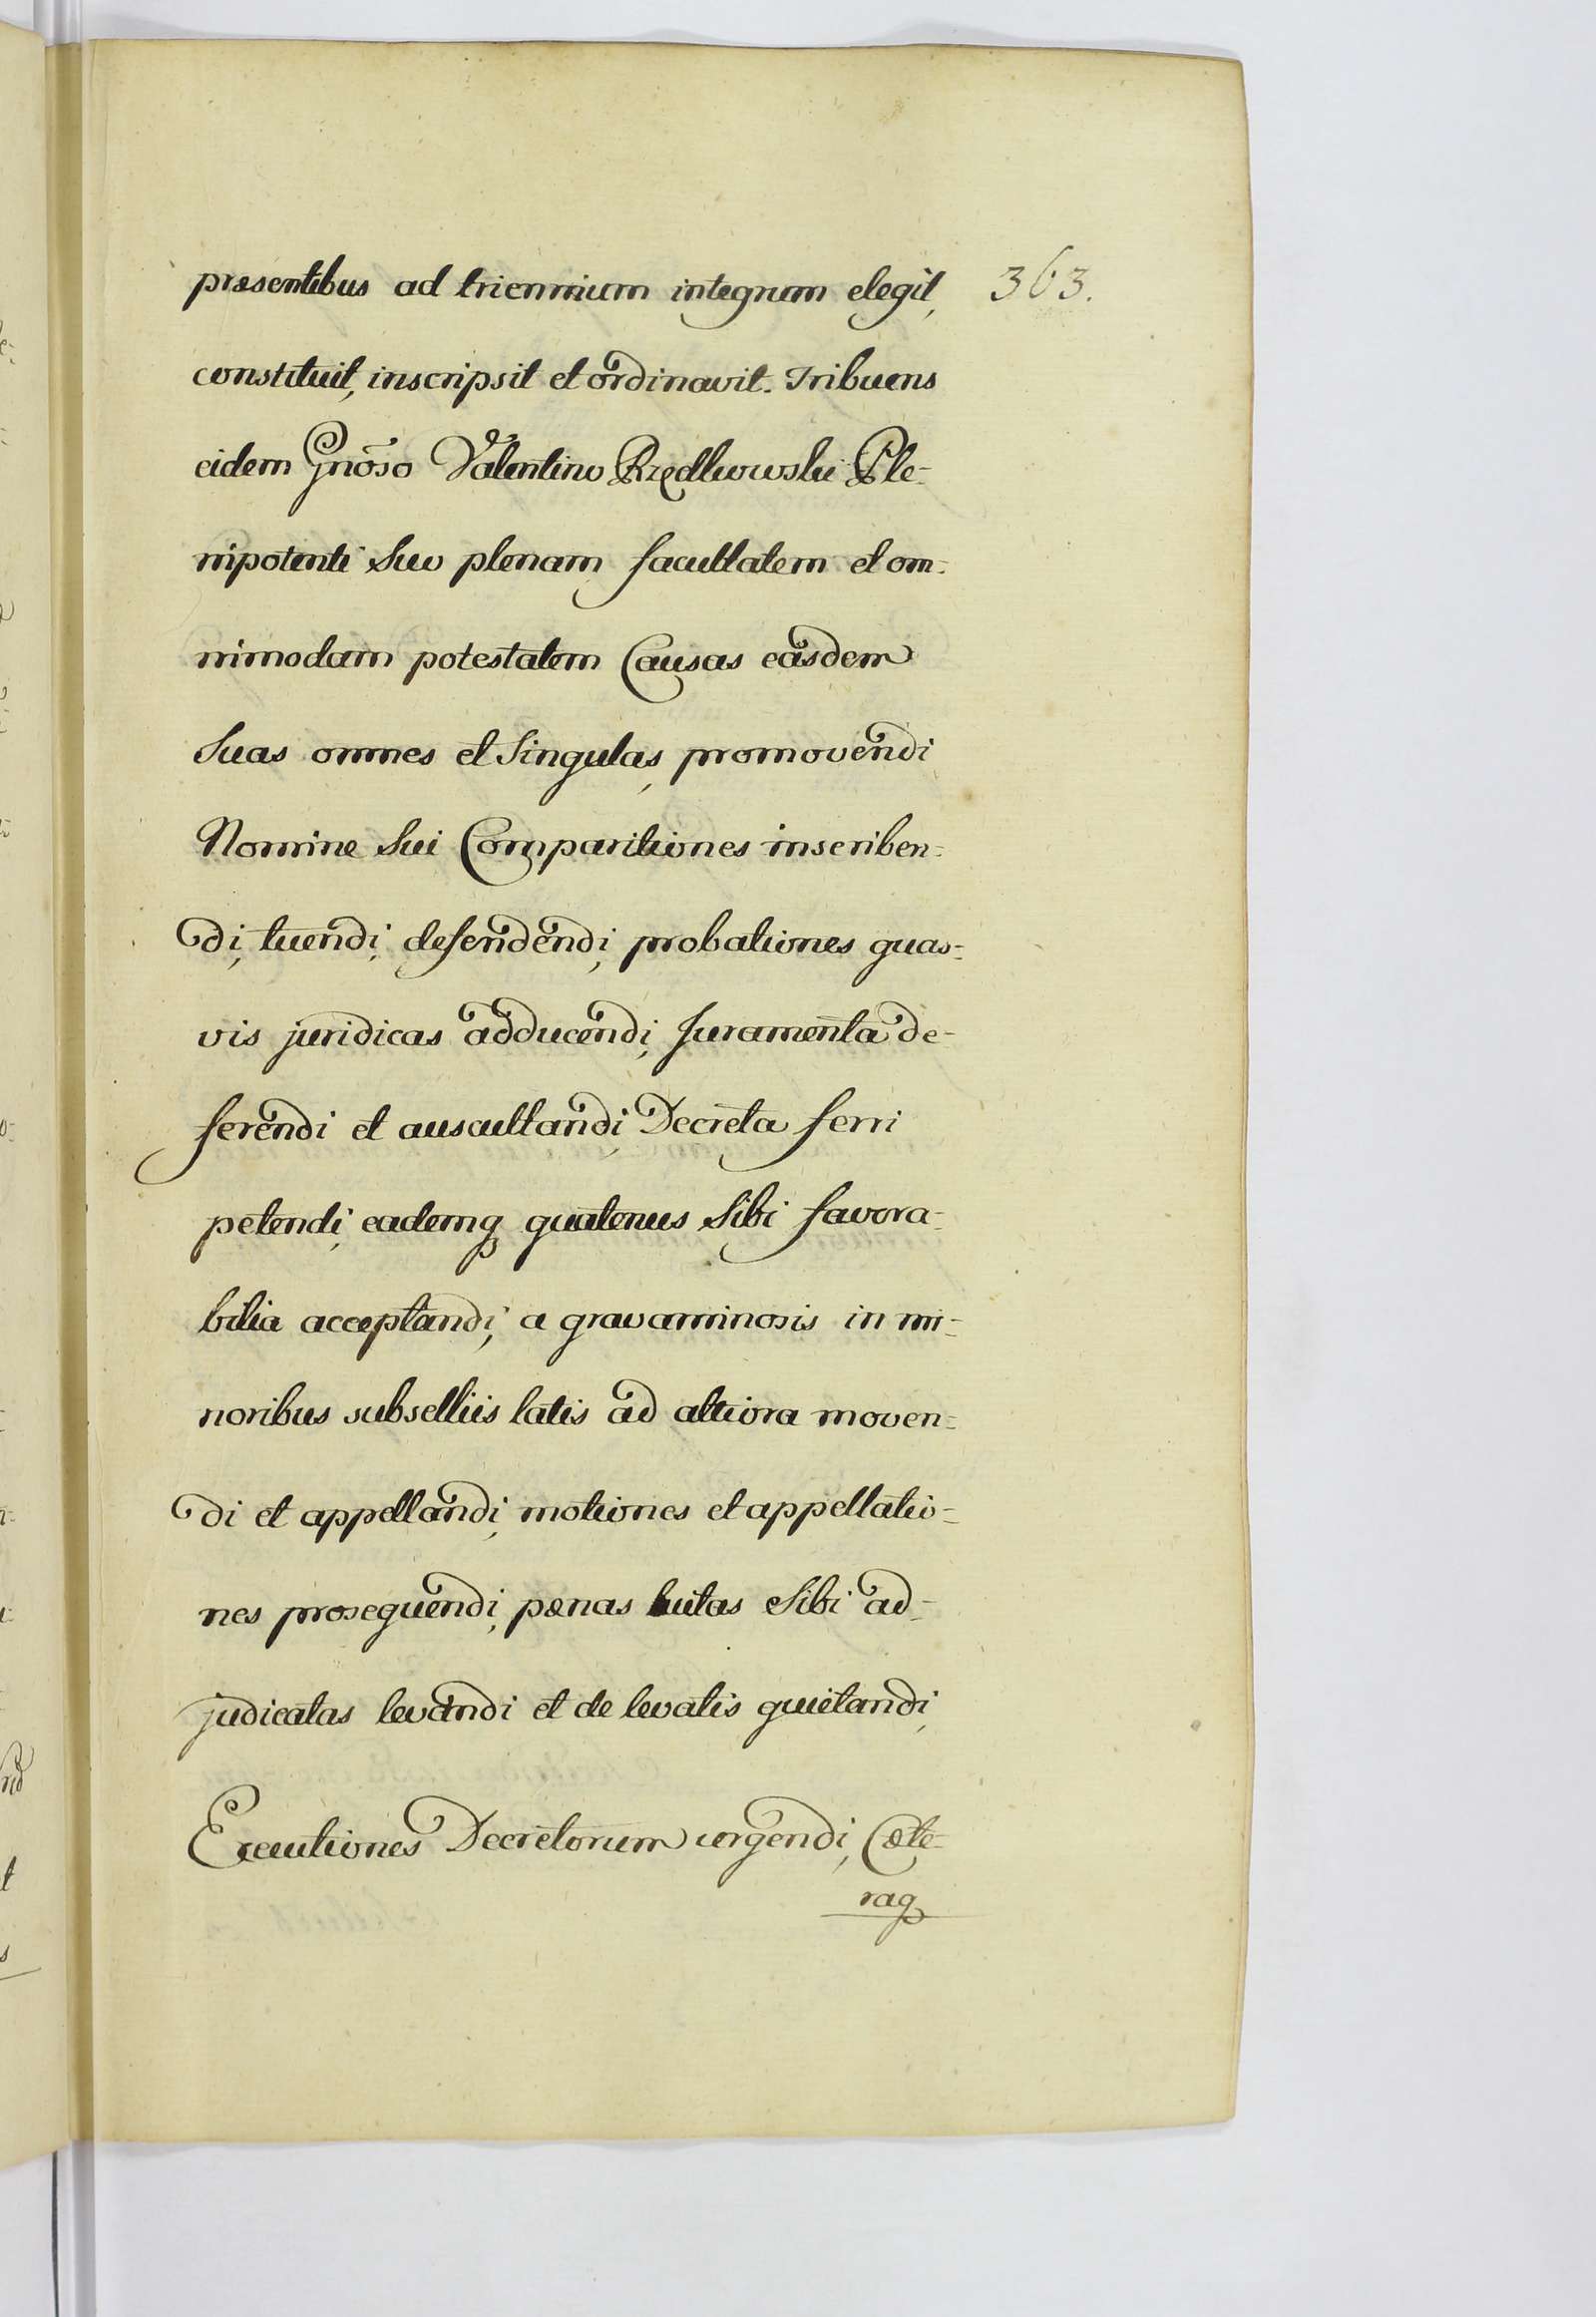 præsentibus ad triennium integrum elegit, 363.
constituit, inscripsit et ordinavit. Tribuens
eidem Gnōso Valentino Rzędkowski Ple-
nipotenti Suo plenam facultatem et om-
nimodam potestatem Causas easdem
Suas omnes et Singulas, promovendi
Nomine Sui Comparitiones inscriben-
di, tuendi, defendendi, probationes quas-
vis juridicas adducendi, Juramenta de-
ferendi et auscultandi, Decreta ferri
petendi, eademq quatenus Sibi favora-
bilia acceptandi, a gravaminosis in mi-
noribus subselliis latis ad altiora moven-
di et appellandi, motiones et appellatio-
nes prosequendi, pænas luitas Sibi ad-
judicatas levandi et de levatis quietandi,
Executiones Decretorum urgendi, Cæte-
raq